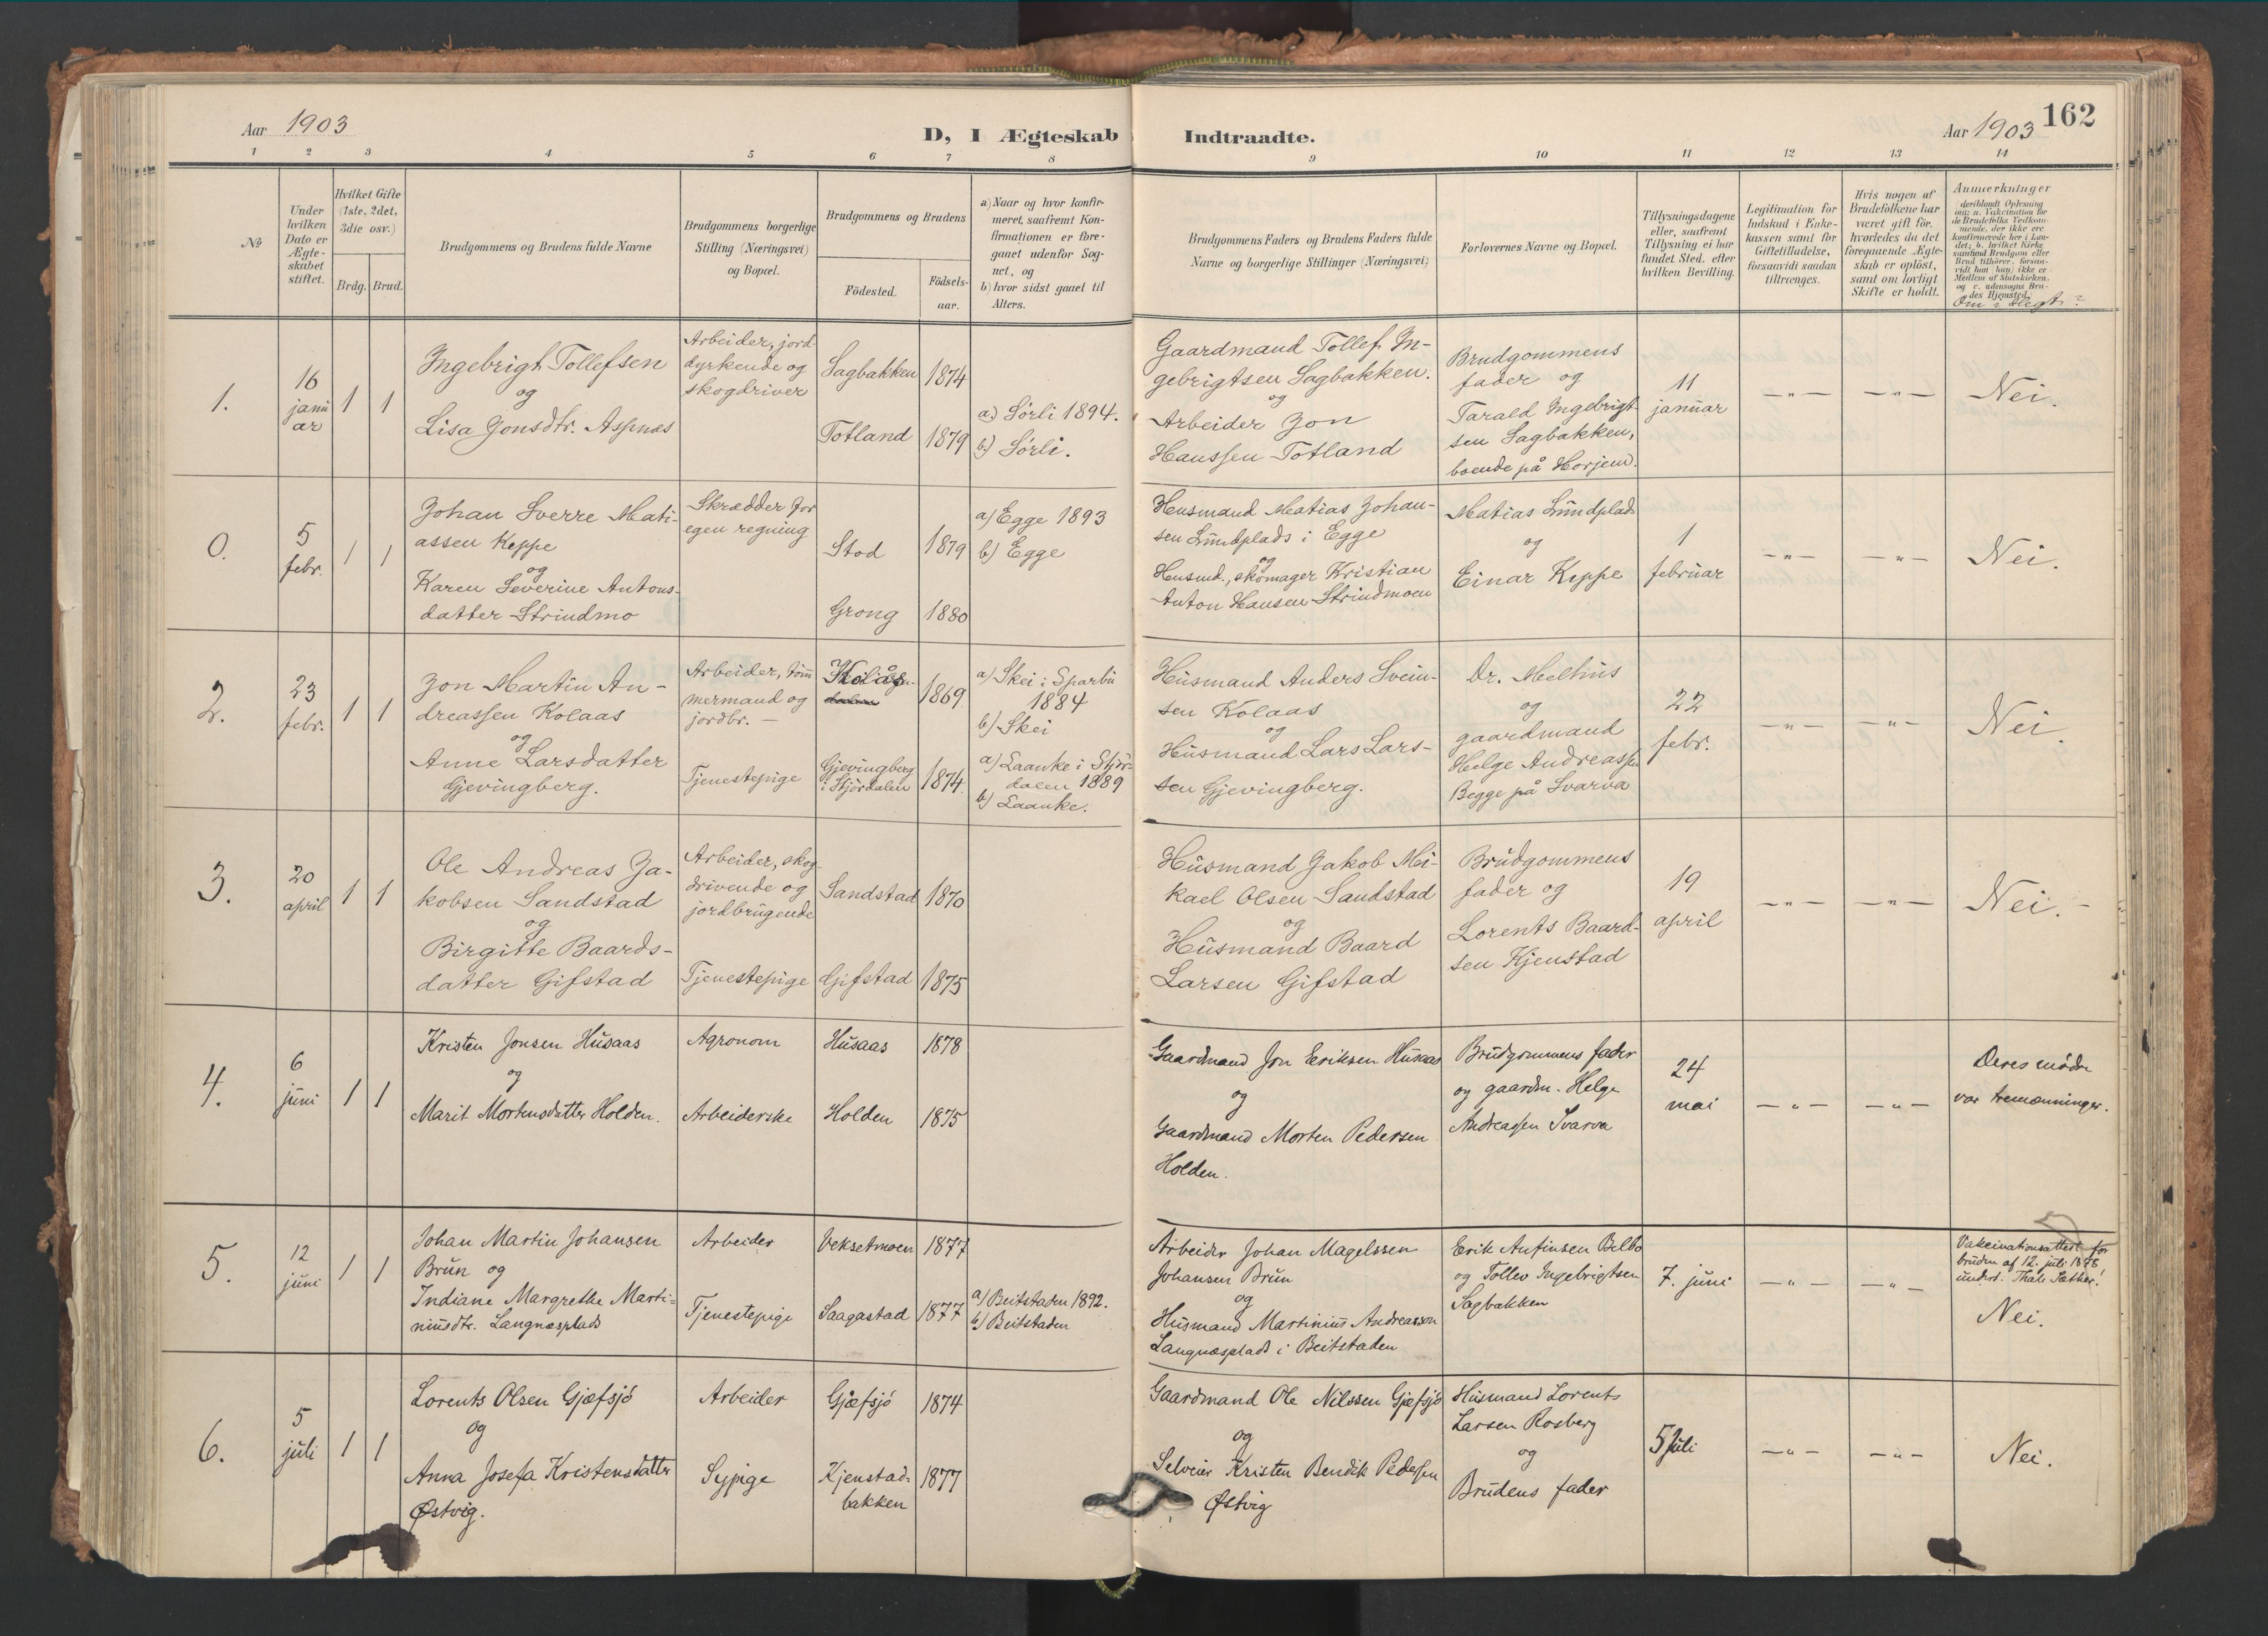 Aar 1903
D, I Ægteskab Indtraadte.
Aar 1903 162
1 2 3 4 5 6 7 8 9 10 11 12 13 14
No
Under
hvilken
Dato er
Ægte-
skabet
stiftet.
Hvilket Gifte
(1ste, 2det,
3die osv.)
Brdg. Brud.
Brudgommens og Brudens fulde Navne
Brudgommens borgerlige
Stilling (Næringsvei)
og Bopæl.
Brudgommens og Brudens
Fødested.
Fødsels-
aar.
a) Naar og hvor konfir-
meret, saafremt Kon-
firmationen er fore-
gaaet udenfor Sog-
net, og
b) hvor sidst gaaet til
Alters.
Brudgommens Faders og Brudens Faders fulde
Navne og borgerlige Stillinger (Næringsvei)
Forlovernes Navne og Bopæl.
Tillysningsdagene
eller, saafremt
Tillysning ei har
fundet Sted, efter
hvilken Bevilling.
Legitimation for
Indskud i Enke-
kassen samt for
Giftetilladelse,
forsaavidt saadan
tiltrænges.
Hvis nogen af
Brudefolkene har
været gift før,
hvorledes da det
foregaaende Ægte-
skab er opløst,
samt om lovligt
Skifte er holdt.
Anmerkninger
(deriblandt Oplysning
om: a. Vakcination for
de Brudefolks Vedkom-
mende, der ikke ere
konfirmerede her i Lan-
det; b. hvilket Kirke-
samfund Brudgom eller
Brud tilhører, forsaa-
vidt han (hun) ikke er
Medlem af Statskirken,
og c. udensogns Bru-
des Hjemsted.)
Om i slegt?
1.
16
janu
ar
1 1
Ingebrigt Tollefsen
og
Lisa Jonsdtr. Aspnæs
Arbeider, jord-
dyrkende og
skogdriver
Sagbakken 1874
Totland 1879
a) Sørli 1894.
b) Sørli.
Gaardmand Tollef In-
gebrigtsen Sagbakken.
og
Arbeider Jon
Hanssen Totland
Brudgommens
fader og
Tarald Ingebrigt-
sen Sagbakken,
boende på Horjem.
11
januar
— " — — " —
Nei.
0.
5
febr.
1 1
Johan Sverre Mati-
assen Keppe
og
Karen Severine Antons-
datter Strindmo
Skrædder for
egen regning
Stod 1879
Grong 1880
a) Egge 1893
b) Egge
Husmand Matias Johan-
sen Lundplads i Egge
og
Husmd., skomager Kristian
Anton Hansen Strindmoen
Matias Lundplads
og
Einar Keppe
1
februar
— " — — " —
Nei.
2.
23
febr.
1 1
Jon Martin An-
dreassen Kolaas
og
Anne Larsdatter
Gjevingberg.
Arbeider, tøm-
mermand og
jordbr. —
Tjenestepige
Kolås 1869
Gjevingberg
i Stjørdalen 1874.
a) Skei i Sparbu
1884
b) Skei
a) Laanke i Stjør-
dalen 1889
b) Laanke.
Husmand Anders Svein-
sen Kolaas
og
Husmand Lars Lars-
sen Gjevingberg.
Dr. Melhus
og
gaardmand
Helge Andreassen
Begge på Svarva
22
febr.
— " — — " —
Nei.
3.
20
april
1 1
Ole Andreas Ja-
kobsen Sandstad
og
Birgitte Baards-
datter Gifstad
Arbeider, skog-
drivende og
jordbrugende
Tjenestepige
Sandstad 1870
Gifstad 1875
Husmand Jakob Mi-
kael Olsen Sandstad
og
Husmand Baard
Larsen Gifstad
Brudgommens
fader og
Lorents Baard-
sen Kjenstad
19
april
— " — — " —
Nei. —
4.
6
juni
1 1
Kristen Jonsen Husaas
og
Marit Mortensdatter Holden.
Agronom
Arbeiderske
Husaas 1878
Holden 1875
Gaardmand Jon Eriksen Husaas
og
Gaardmand Morten Pedersen
Holden.
Brudgommens fader
og gaardm. Helge
Andreassen Svarva
24
mai
— " — — " —
Deres mødre
var tremænninger.
5.
12
juni
1 1
Johan Martin Johansen
Brun og
Indiane Margrethe Marti-
niusdtr. Langnæsplads
Arbeider
Tjenestepige
Veksetmoen 1877
Saagastad 1877
a) Beitstaden 1892.
b) Beitstaden
Arbeider Johan Magelssen
Johansen Brun
og
Husmand Martinius Andreasson
Langnæsplads i Beitstaden
Erik Anfinsen Belbo
og Tollev Ingebrigtsen
Sagbakken
7. juni
— " — — " —
Vakcinationsattest for
bruden af 12. juli 1878,
underst. Thale Sæther.
Nei.
6.
5
juli
1 1
Lorents Olsen Gjæfsjø
og
Anna Josefa Kristensdatter
Østvig.
Arbeider
Sypige
Gjæfsjø 1874
Kjenstad-
bakken 1877
Gaardmand Ole Nilssen Gjæfsjø
og
Selveier Kristen Bendik Pedersen
Østvig
Husmand Lorents
Larsen Rosberg
og
Brudens fader
5 juli
— " — — " —
Nei.